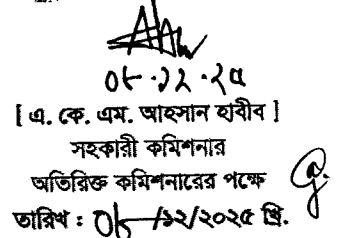 ০৮.১২.২৫
[ এ. কে. এম. আহসান হাবীব ]
সহকারী কমিশনার
অতিরিক্ত কমিশনারের পক্ষে
তারিখ : ০৮/১২/২০২৫ খ্রি.